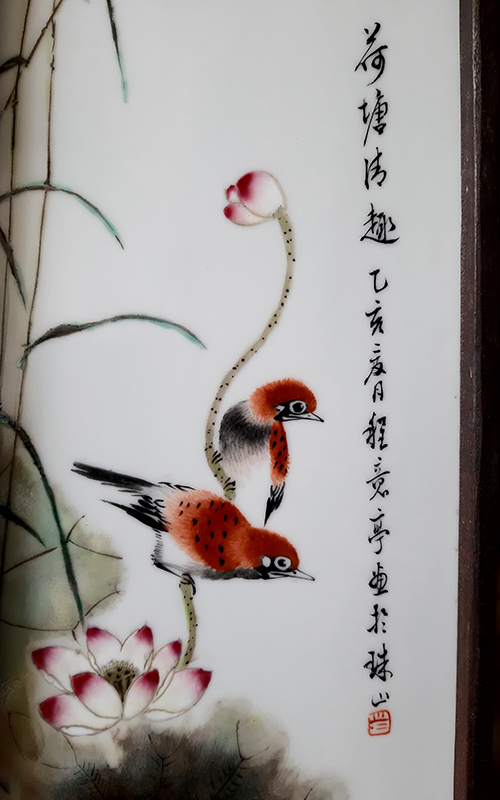 荷塘清趣 乙亥夏月程意亭画於珠山